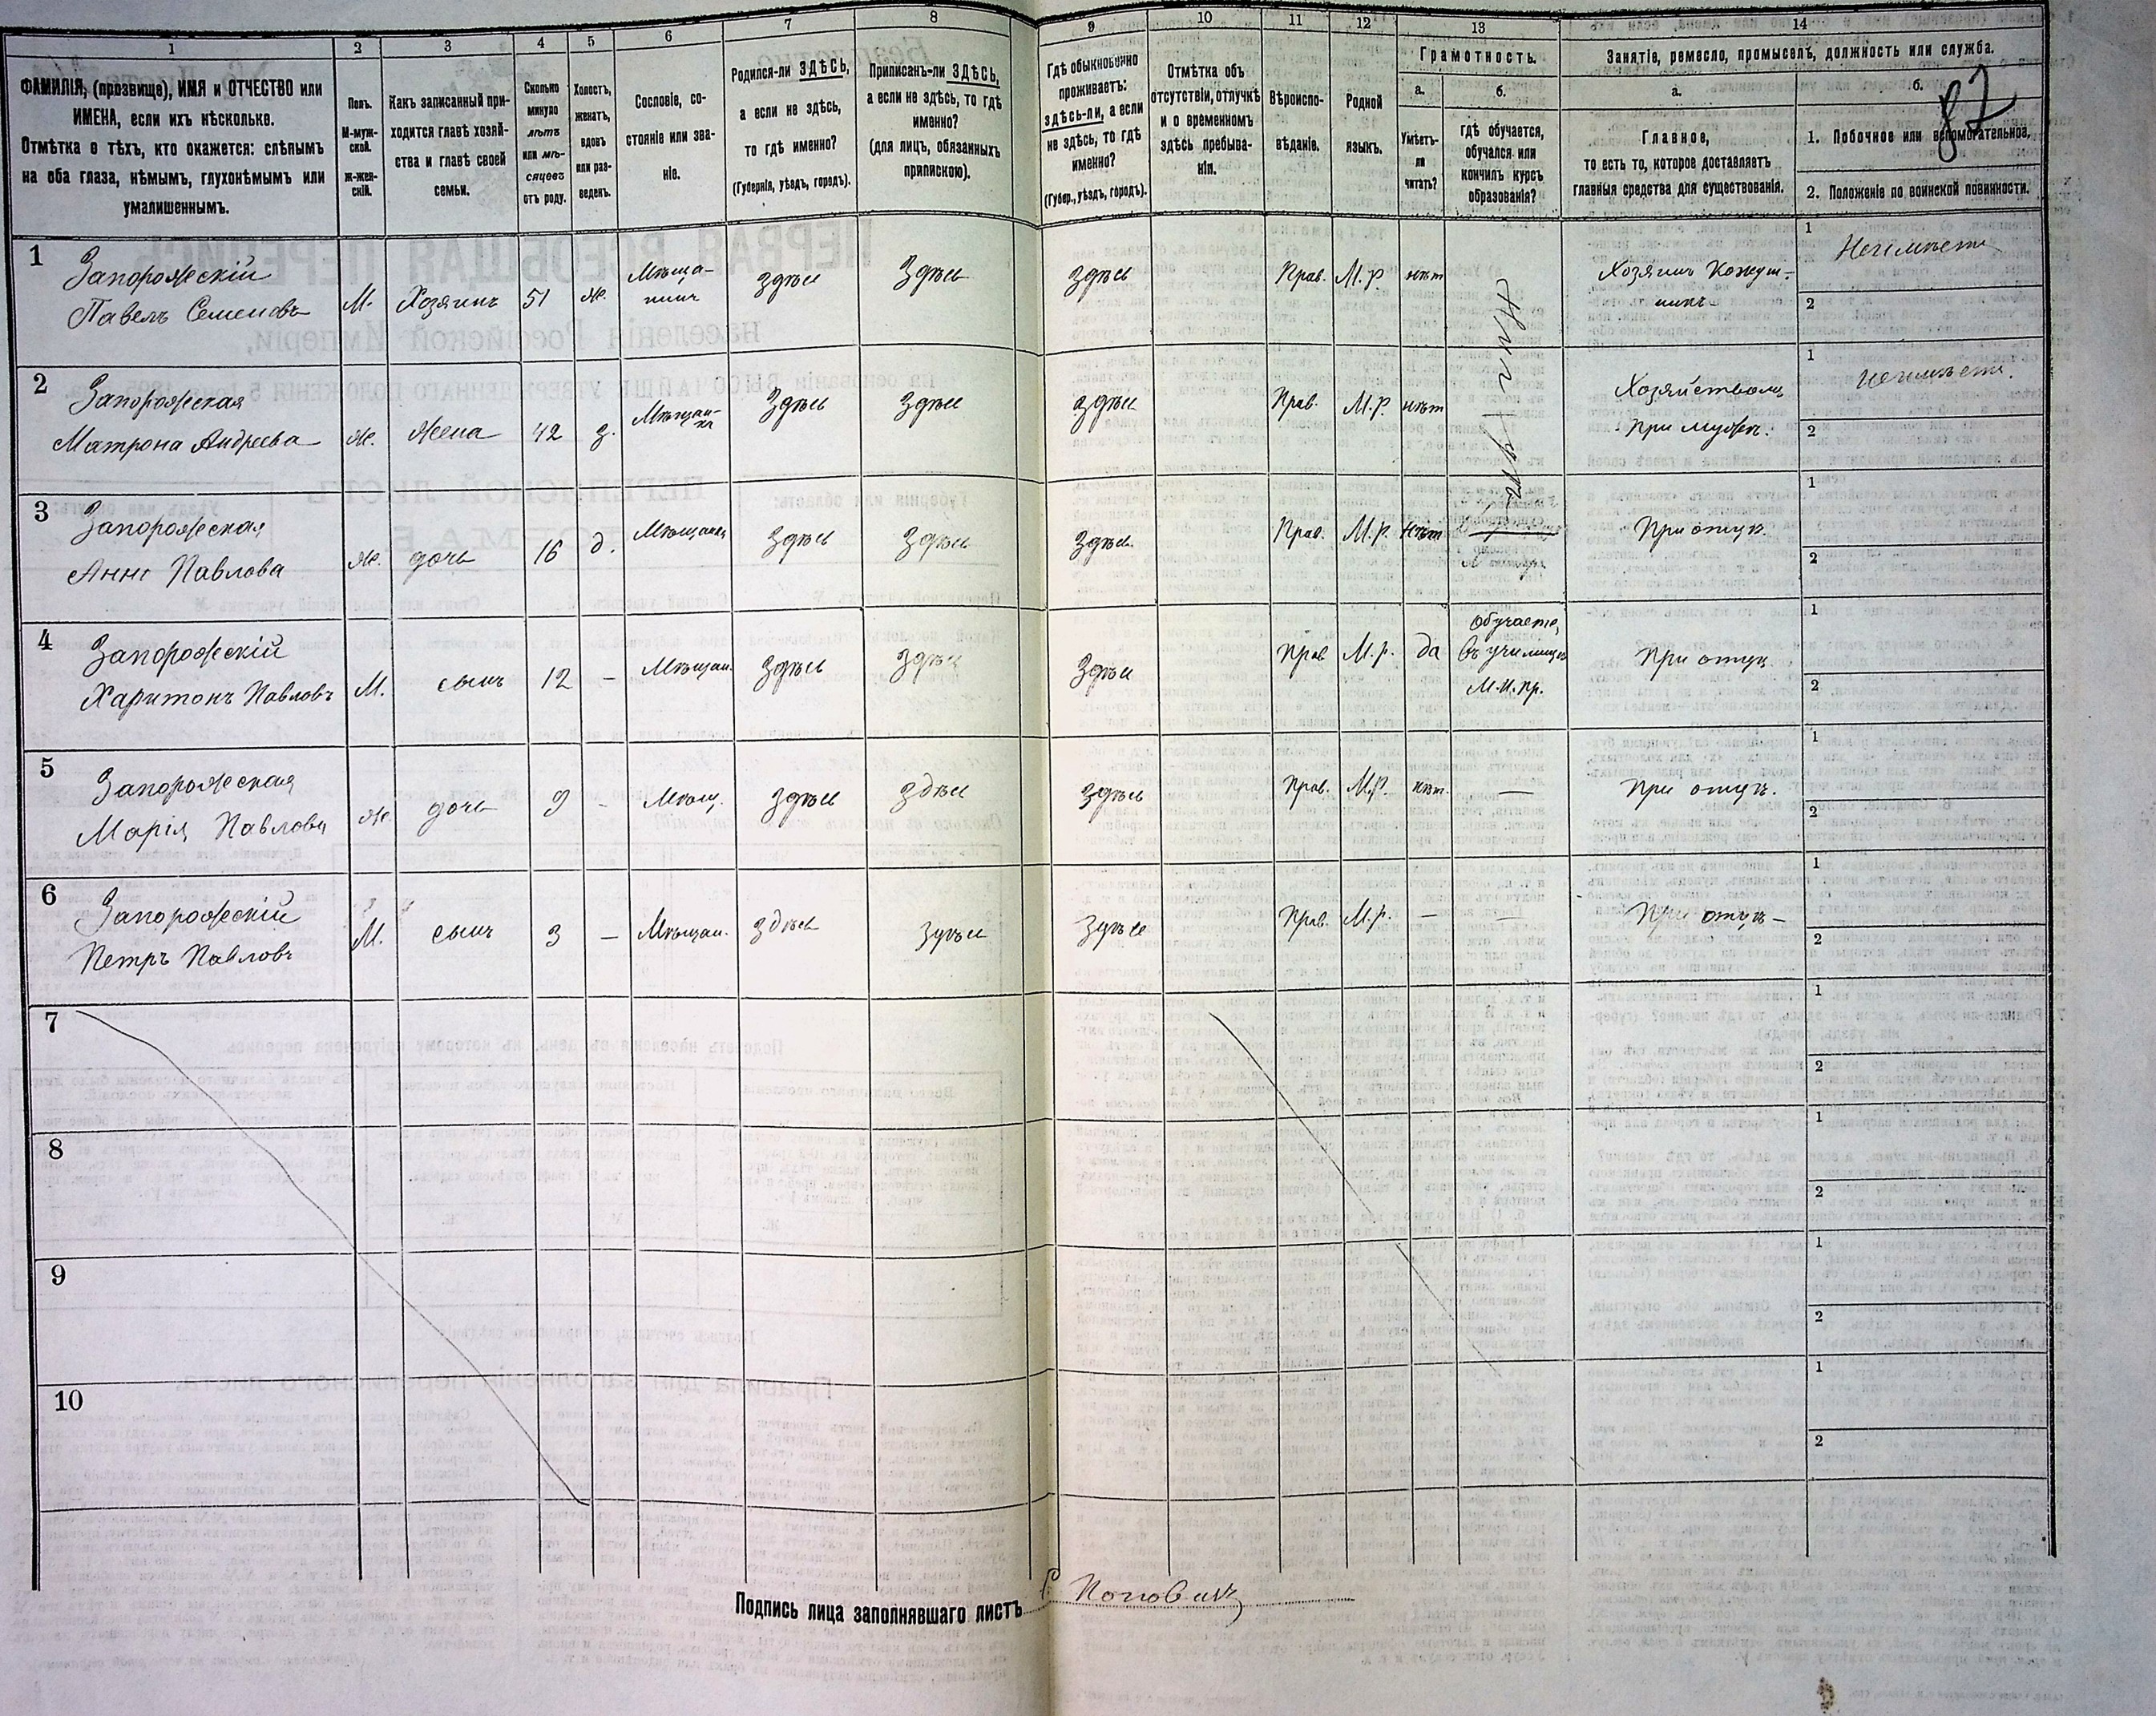 1 2 3 4 5 6 7 8 9 10 11 12 13 14
ФАМИЛІЯ, (прозвище), ИМЯ и ОТЧЕСТВО или
ИМЕНА, если ихъ нѣсколько.
Отмѣтка о тѣхъ, кто окажется: слѣпымъ
на оба глаза, нѣмымъ, глухонѣмымъ или
умалишеннымъ.
Полъ.
М-муж-
ской.
Ж-жен-
скій.
Какъ записанный при-
ходится главѣ хозяй-
ства и главѣ своей
семьи.
Сколько
минуло
лѣтъ
или мѣ-
сяцевъ
отъ роду.
Холостъ,
женатъ,
вдовъ
или раз-
веденъ.
Сословіе, со-
стояніе или зва-
ніе.
Родился-ли ЗДѢСЬ,
а если не здѣсь,
то гдѣ именно?
(Губернія, уѣздъ, городъ).
Приписанъ-ли ЗДѢСЬ,
а если не здѣсь, то гдѣ
именно?
(для лицъ, обязанныхъ
припискою).
Гдѣ обыкновенно
проживаетъ:
здѣсь-ли, а если
не здѣсь, то гдѣ
именно?
(Губер., уѣздъ, городъ).
Отмѣтка объ
отсутствіи, отлучкѣ
и о временномъ
здѣсь пребыва-
ніи.
Вѣроиспо-
вѣданіе.
Родной
языкъ.
Грамотность.
а.
Умѣетъ-
ли
читать?
б.
гдѣ обучается,
обучался или
кончилъ курсъ
образованія?
Занятіе, ремесло, промыселъ, должность или служба.
а.
Главное,
то есть то, которое доставляетъ
главныя средства для существованія.
б.
82
1. Побочное или вспомогательное.
2. Положеніе по воинской повинности.
1 Запорожскій
Павелъ Семеновъ М. Хозяинъ 51 ж. Мѣща-
нинъ здѣсь здѣсь здѣсь Прав. М.р. нѣт Хозяинъ Кожуш-
никъ 1 Неимѣетъ
2
2 Запорожская
Матрона Андреева ж. жена 42 з. Мѣщан-
ка здѣсь здѣсь здѣсь Прав. М.р. нѣт Хозяйством
При мужѣ. 1 Неимѣетъ.
2
3 Запорожская
Анна Павлова ж. дочь 16 д. Мѣщанка здѣсь здѣсь здѣсь Прав. М.р. Нѣт При отцѣ. 1
2
4 Запорожскій
Харитонъ Павловъ М. сынъ 12 – Мѣщан. здѣсь здѣсь здѣсь Прав М.р. да Обучается
въ училищѣ
М.Н.Пр. При отцѣ 1
2
5 Запорожская
Марія Павлова ж. дочь 9 – Мѣщ. здѣсь здѣсь здѣсь Прав. М.р. нѣт. — При отцѣ. 1
2
6 Запорожскій
Петръ Павловъ М. сынъ 3 – Мѣщан. здѣсь здѣсь здѣсь Прав. М.р. — — При отцѣ – 1
2
7 1
2
8 1
2
9 1
2
10 1
2
Подпись лица заполнявшаго листъ